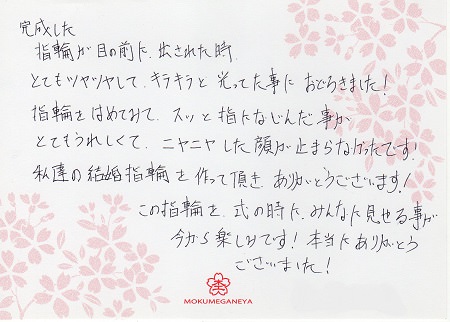 完成した
指輪が目の前に、出された時、
とてもツヤツヤして、キラキラと光ってた事におどろきました!
指輪をはめてみて、スッと指になじんだ事が
とてもうれしくて、ニヤニヤした顔が止まらなかったです!
私達の結婚指輪を作って頂きありがとうございます!
この指輪を、式の時に、みんなに見せる事が
今から楽しみです!本当にありがとう
ございました!
MOKUMEGANEYA